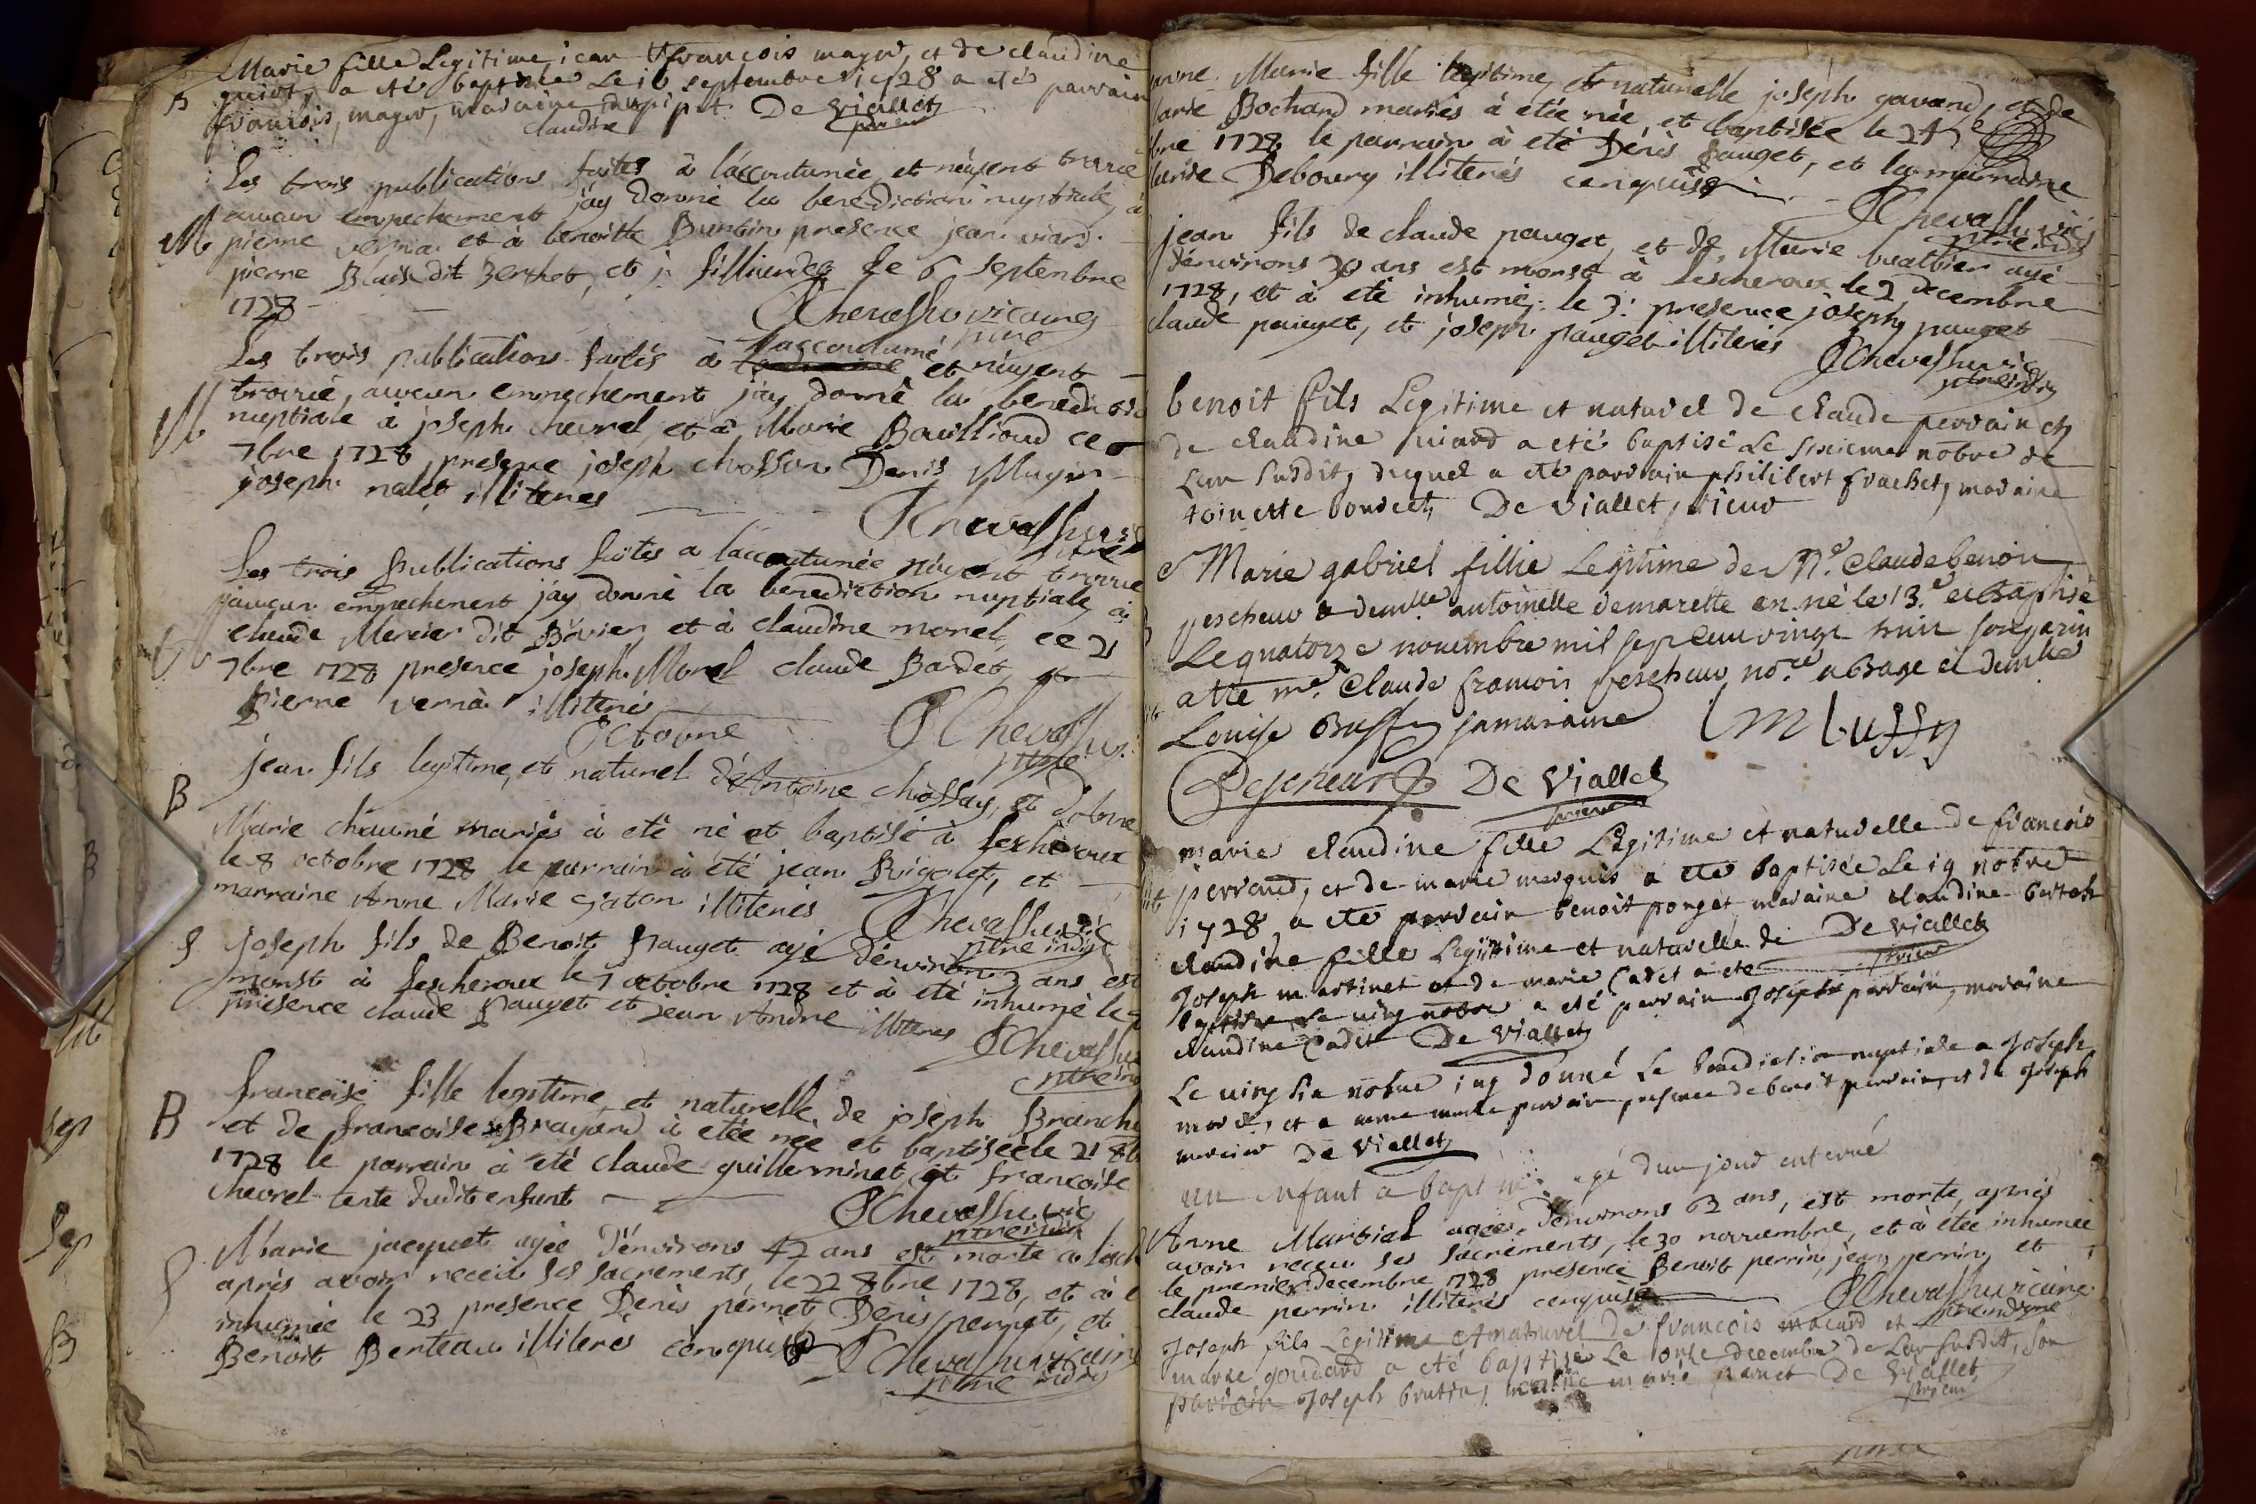 Marie fille Legitime jean françois mayer, et de claudine
guiot, a eté baptisée Le 16 septembre 1728 a eté parrain
B
françois, mayer, maraine claudine De Viallet
prieur
Les trois publications faites à l'accoutumée et n'ayent trouvé
aucun empechement j'ay donné la benediction nuptiale, à
M pierre verna et à benoitte Burtin presence jean viard
pierre Blais dit Berthet, et j. filliardet le 6 septembre
1728
JChevassu vicaire
ptre
Les trois publications faites à l'accoutumé et n'ayent
M trouvé, aucun empechement j'ay donné la benedict
nuptiale à joseph chevrel et à Marie Bouilloud ce
7bre 1728, presence joseph chosson Denis Mayer
joseph nalet illiteres
JChevassu
ptre
Les trois Publications faites a l'accoutumée n'ayent trouvé
aucun empechement j'ay donné la benediction nuptiale à
M claude Mercier dit Bovier et à claudine morel, ce 21
7bre 1728 presence joseph Morel claude Bardet et
pierre verna illiteré
Octobre
JChevassu
ptre
jean fils legitime, et naturel d'Antoine chossay, et d'
B
Marie chauné mariés à eté né et baptisé à lescheroux
le 8 octobre 1728 le parrain à été jean Rigolet, et
marraine Anne Marie gaton illiteres
JChevassu vic
ptre indig
S joseph fils de Benoit pauget agé d'environ 3 ans est
morst à Lescheroux le 7 octobre 1728 et à eté inhumé le
presence claude pauget et jean André illiteres
JChevassu
ptre ind
B francoise fille legitime et naturelle de joseph Branche
et de francoise Brayard à etée née et baptisée le 21 8b
1728 le parrain à eté claude guillerminet et francoise
chevrel tente dudit enfant
JChevassu vic
ptre indig
S Marie jacquet agée d'environs 42 ans est morte a lesch
après avoir receu ses sacrements, le 22 8bre 1728, et à e
inhumée le 23 presence Denis pernet, Denis pernet, et
Benoit Berteau illiteres cenquis
JChevassu vicaire
ptre indig
anne Marie fille legitime, et naturelle joseph gavand, et de
marie Bochard mariés à etée née et baptisée le 24e
bre 1728 le parrain à eté Denis pauget, et la marraine
Deboury illiterés cenquis
JChevassu vic
ptre indig
jean fils de claude pauget, et de Marie buathier agé
d'environs 30 ans est morst à lescheroux le 2 decembre
1728, et à eté inhumé le 3: presence joseph pauget
claude pauget, et joseph pauget illiterés
JChevassu vic
ptre indig
benoit fils Legitime et naturel de claude perrain et
de claudine a eté baptisé Le sixieme nobre de
Lan susdit, duquel a eté parrain philibert frachet, maraine
toinette boudet, De Viallet, prieur
Marie gabriel fillie Legitime de Me. Claude benoit
pescheur & demlle antoinette demarette en né le 13.e et Baptisé
Le quatorze novembre mil sept cens vingt huit son parin
a ete me. Claude francois pescheur no.re a Bage et demlle
Louise Buffy samaraine LM buffy
Pescheur De Viallet
prieur
marie claudine fille Legitime et naturelle de francois
perraud, et de marie marquis a ete baptisée Le 19 nobre
1728, a ete parrain benoit ponget maraine claudine bertet
De Viallet
prieur
claudine fille Legitime et naturelle de
Joseph martinet et de marie Cadet a ete
baptisée Le ving nobre a eté parrain Joseph perrain, maraine
claudine Cadet De Viallet
Le ving six nobre iay donné Le benediction nuptiale a Joseph
morel, et a anne marie perrain presence de benoit perrain, et de Joseph
mercier De Viallet
un enfant a bapt agé dun jour enterré
Anne Martial agée d'environs 62 ans, est morte, aprés
avoir receu ses sacrements, le 30 novembre, et à etée inhumée
le premier decembre 1728 presence Benoit perrin, jean perrin, et
claude perrin illiterés cenquis
JChevassu vicaire
ptre indigne
Joseph fils Legitime et naturel de francois macard et
marie goudard a eté baptisé Le onze decembre de Lan susdit, son
parrain Joseph brutin, marie panet De Viallet
prieur